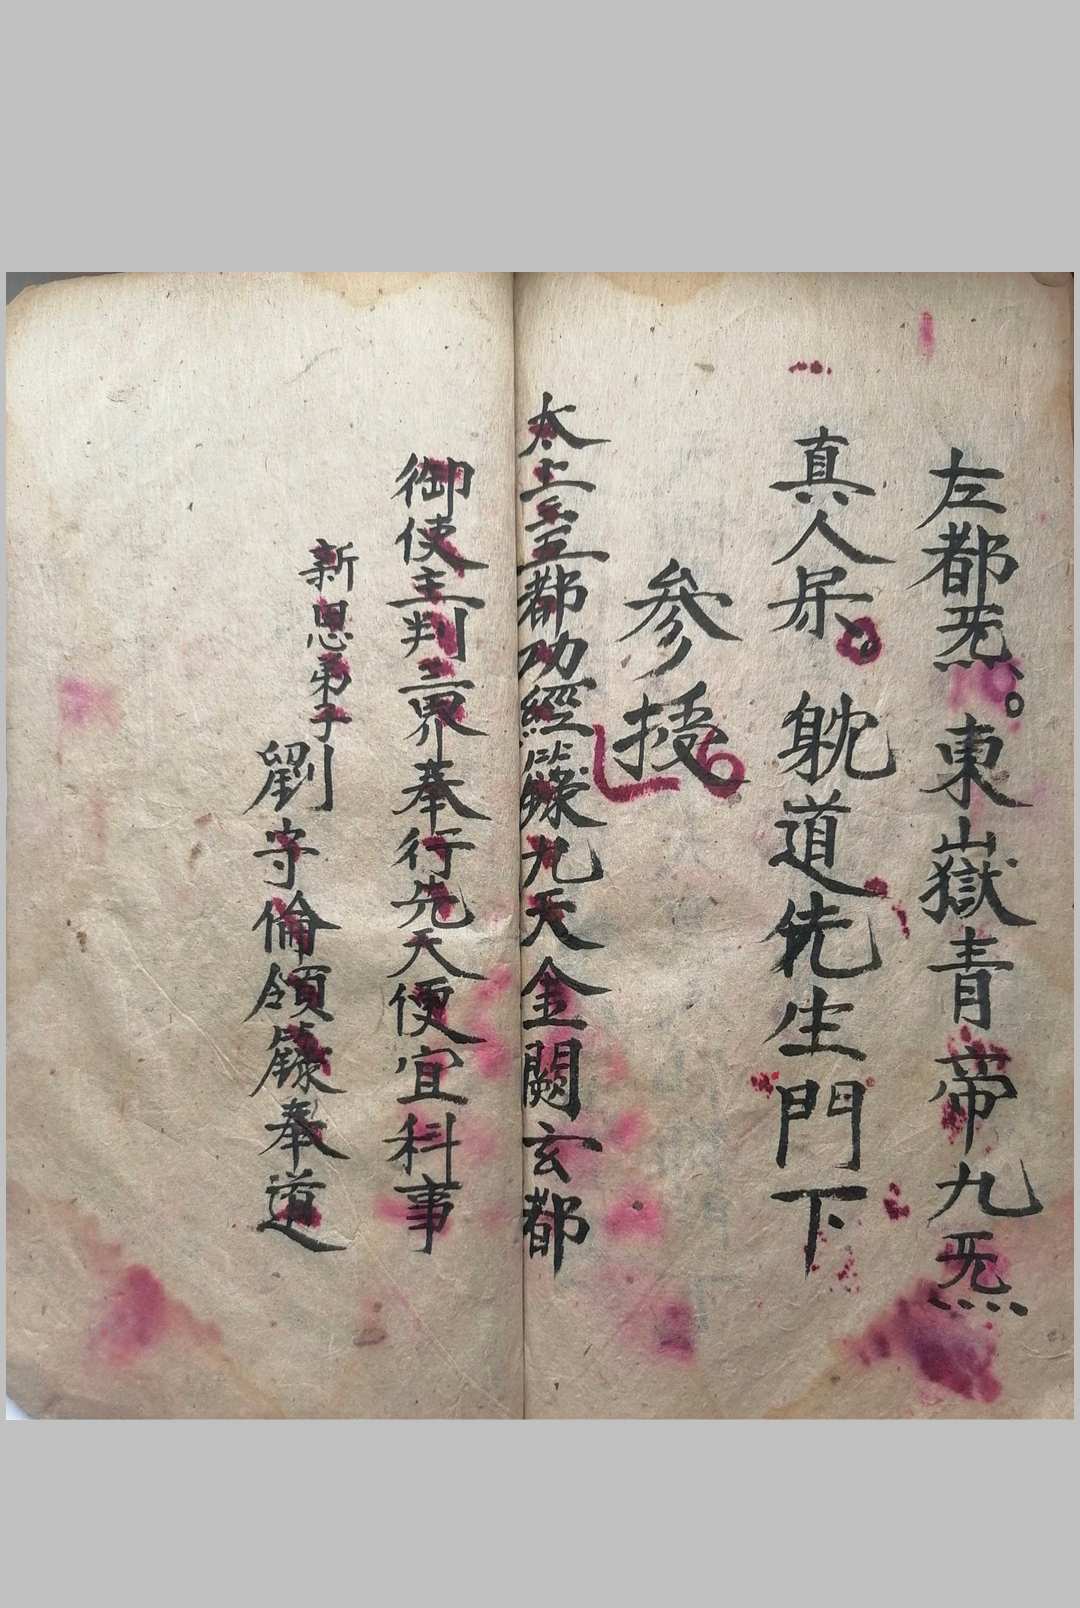 左都炁。東嶽青帝九炁
真人 躭道先生門下
參授
太上三五都功經籙九天金闕玄都
御使主判三界奉行先天便宜科事
新恩弟子劉守倫領籙奉道